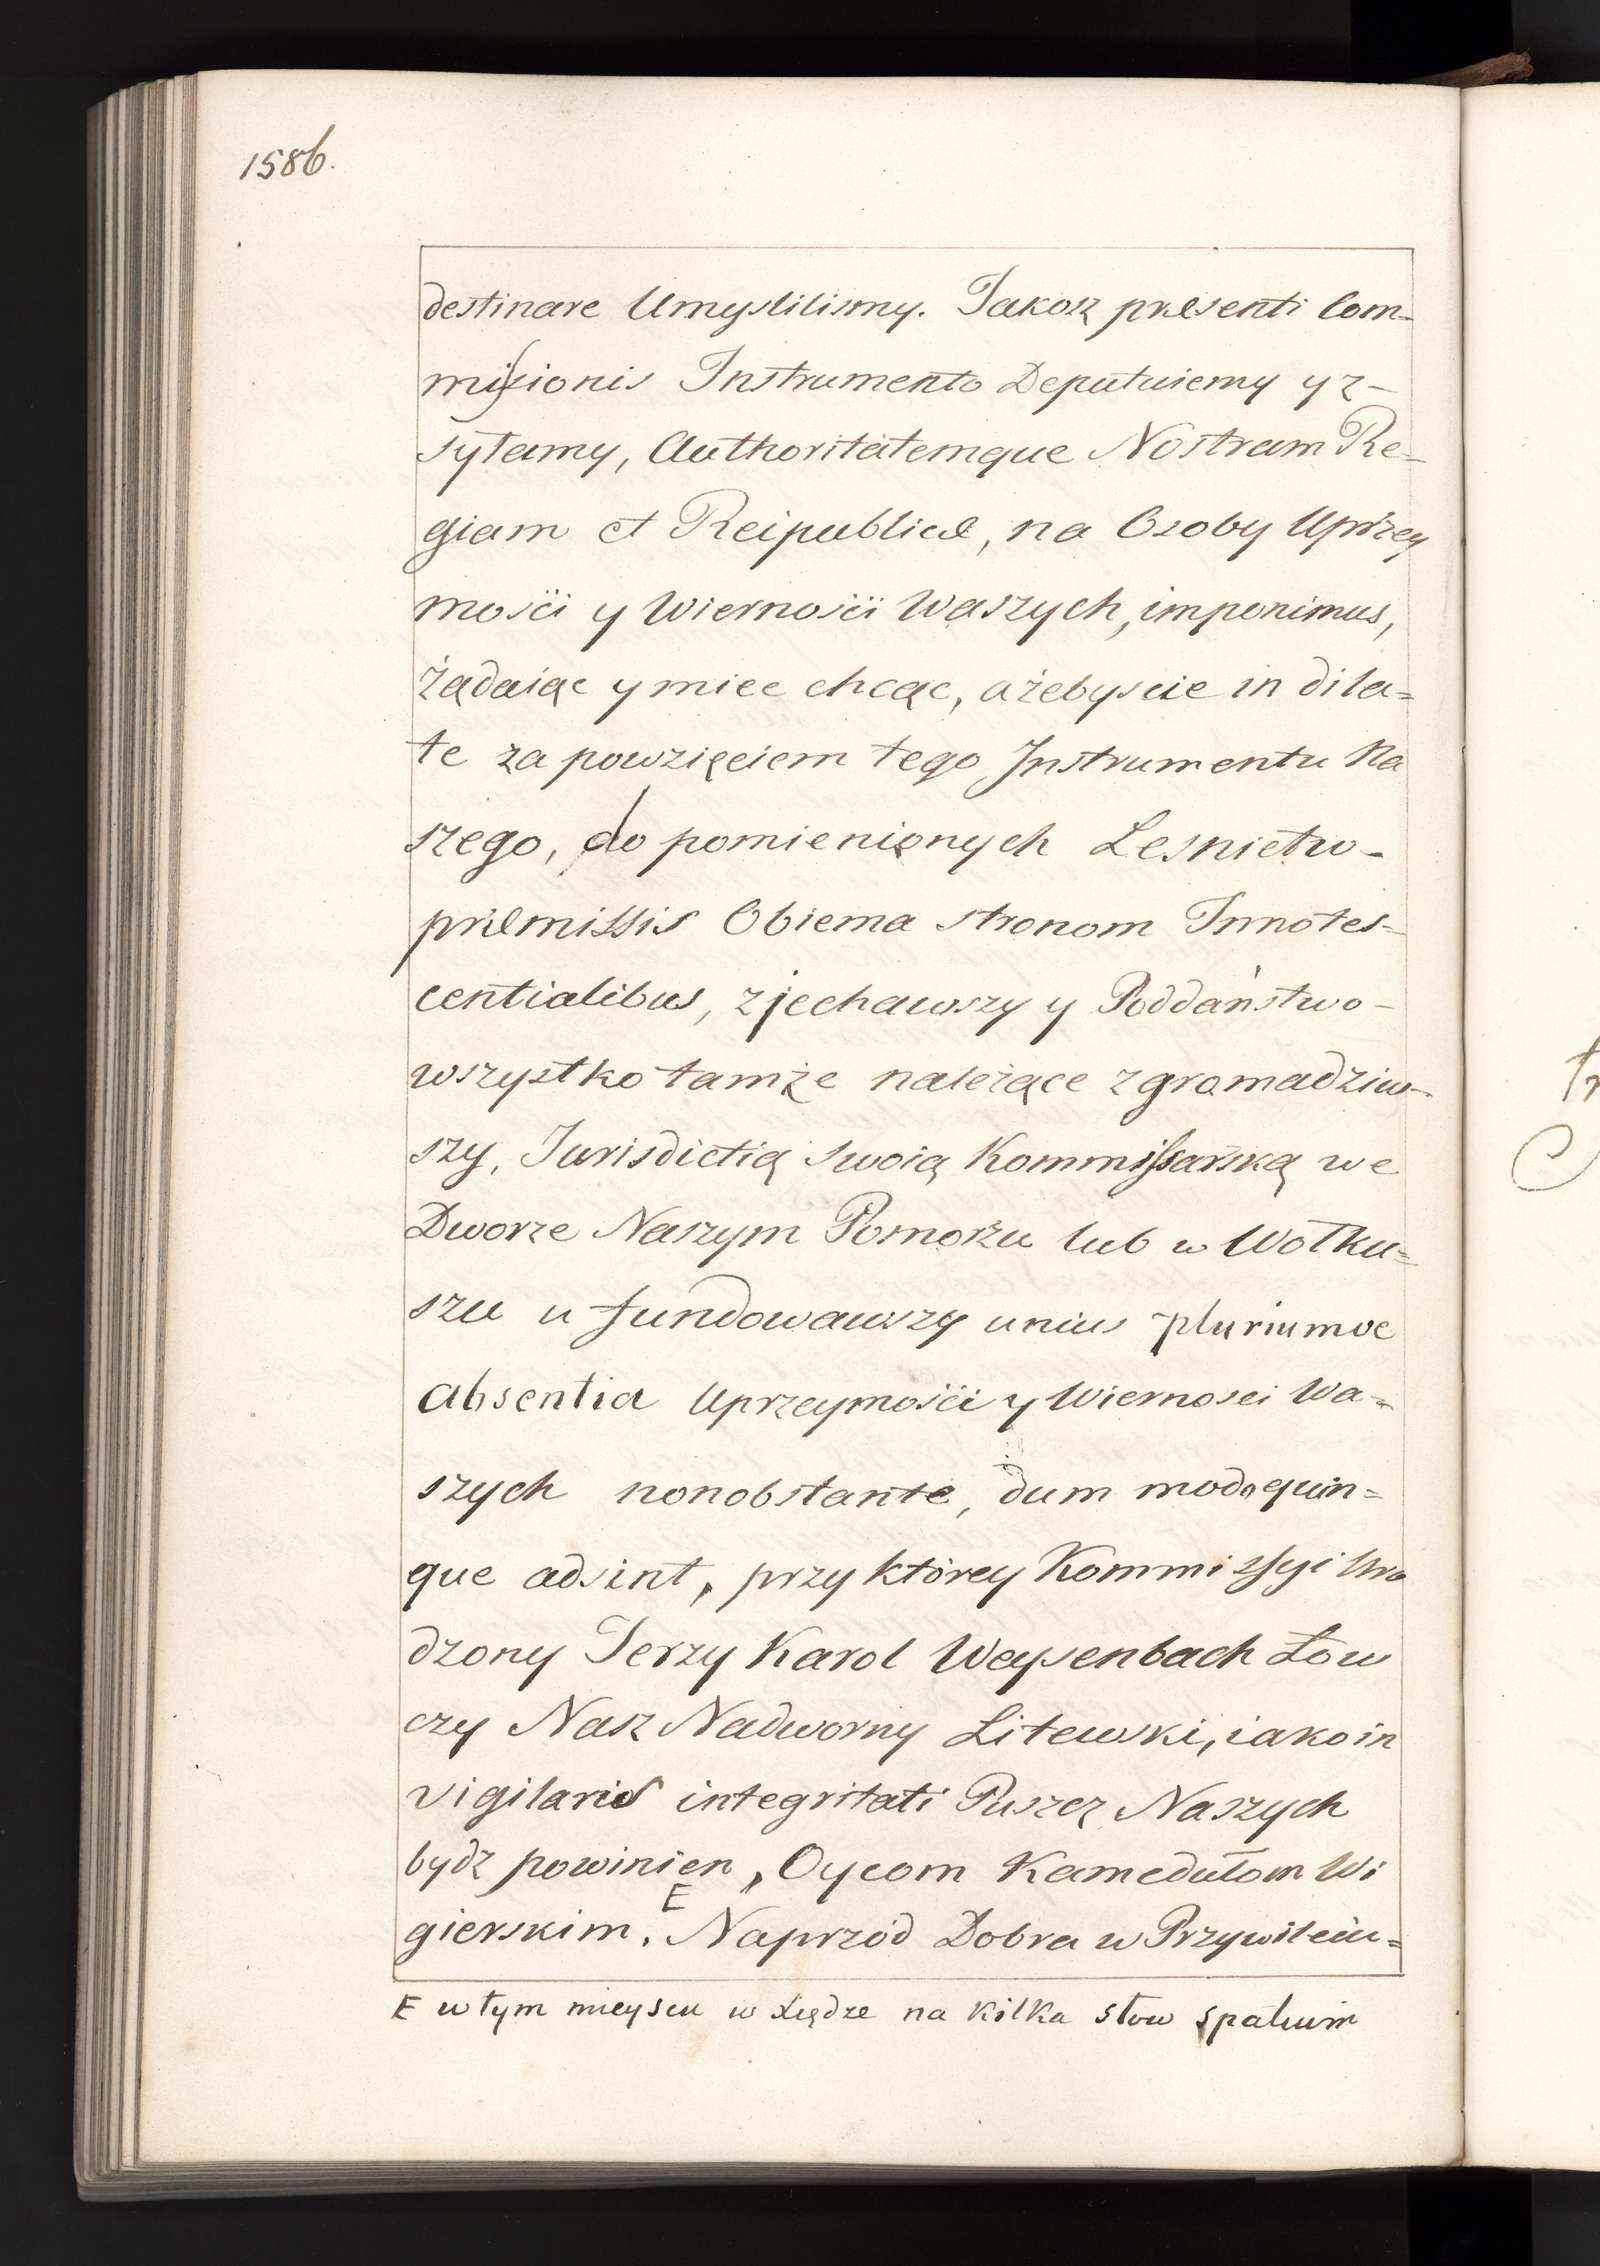 1586.
destinare Umyslilismy. Jakoż præsenti Com-
missionis Instrumento Deputuiemy y z-
syłamy, Authoritatemque Nostram Re-
giam et Reipublicæ, na Osoby Uprzey
mości y Wierności Waszych, imponimus,
żądaiąc y miec chcąc, ażebyscie in dila=
te za powzięciem tego Instrumentu Na
szego, do pomienionych Lesnictw-
præmissis Obiema stronom Innotes=
centialibus, zjechawszy y Poddaństwo-
wszystko tamże należące zgromadziw-
szy, Jurisdictią swoią Kommissarską we
Dworze Naszym Pomorzu lub w Wołku=
szu u fundowawszy unius pluriumve
absentia Uprzeymości y Wiernosci Wa=
szych nonobstante, dum modo quin=
que adsint, przy którey Kommissyi Uro
dzony Jerzy Karol Weysenbach Łow
czy Nasz Nadworny Litewski, iako in
vigilans integritati Puszcz Naszych
bydz powinien, Oycom Kamedułom Wi
gierskim. E Naprzód Dobra w Przywileiu=
E w tym mieyscu w xiędze na kilka słow spatium
tr